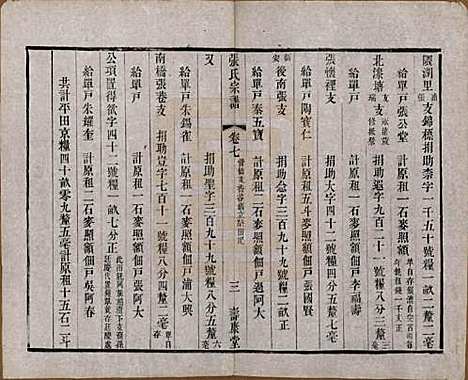 隄澗里支錦穗捐助柰字一千五十號糧一畝二釐二毫
給單戶張公堂 計原租一石麥照額佃戶
北濠塘支 捐助遐字九百十一號糧八分三釐
給單戶 計原租二石麥照額佃戶李福壽
張懷裡支 捐助大字四十二號糧四畝五分七釐七毫
給單戶陶寳仁 計原租五斗麥照額佃戶張國賢
後南張支 捐助念字三百九十九號糧二畝正
給單戶泰五寳 計原租二石麥照額佃戶過阿大
張氏宗譜
卷七
三
壽康堂
又 捐助聖字三百九十九號糧八分五釐六毫
給單戶朱錫雀 計原租一石麥照額佃戶浦大興
南橋張巷支 捐助豈字七百十一號糧八分四釐二毫
給單戶 計原租二石麥照額佃戶張阿大
公項置得欲字四十二號糧一畝七分正
給單戶朱耀奎 計原租二石麥照額佃戶吳阿春
共計平田京糧四十畝零九釐五毫計原租十五石二斗